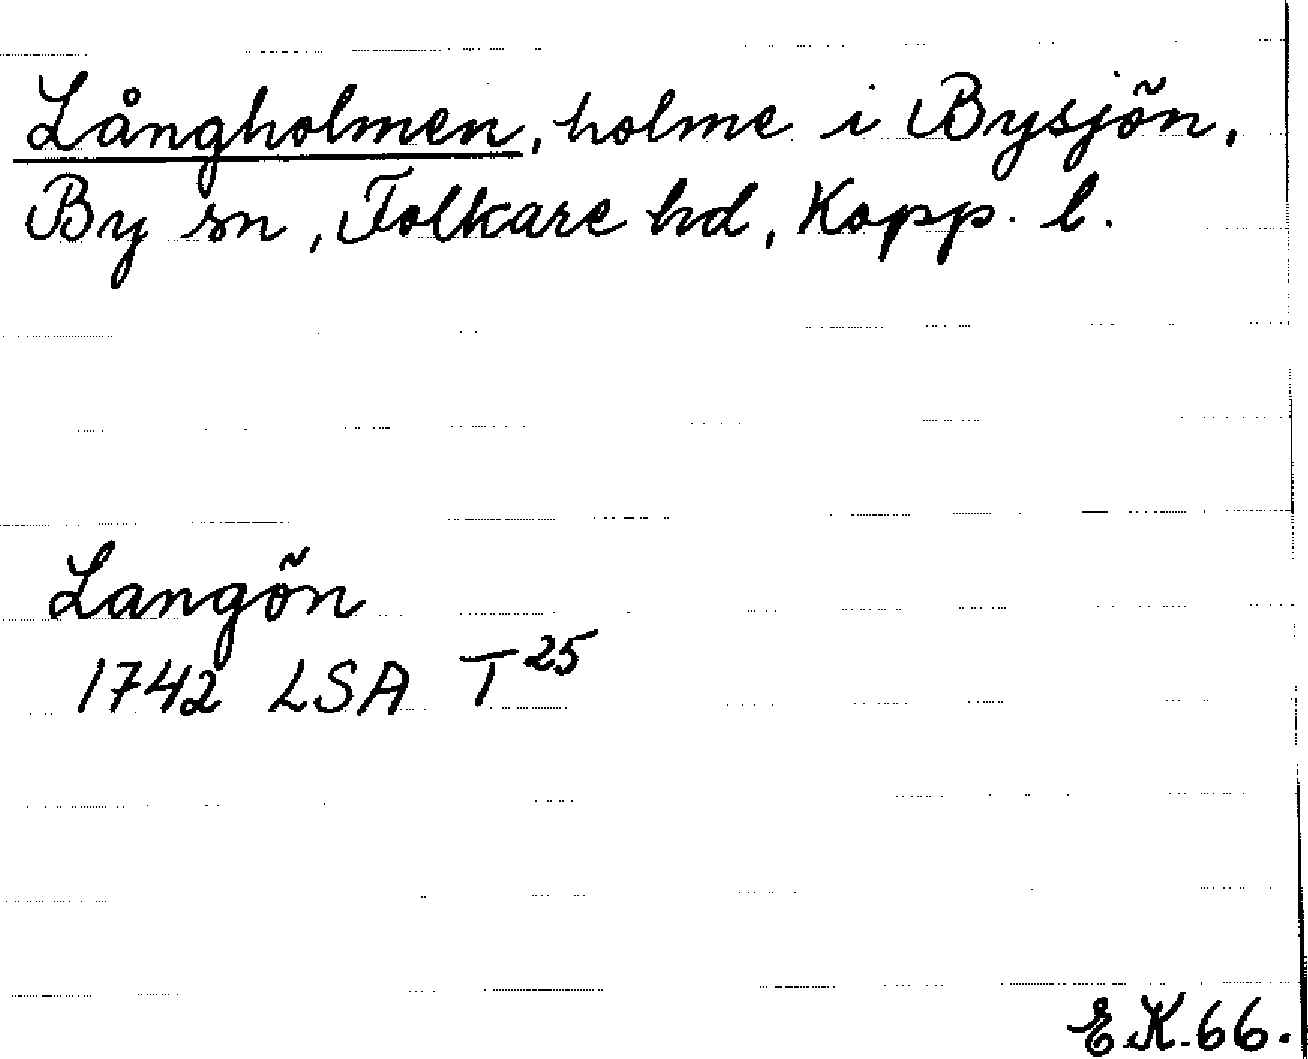 Långholmen, holme i Bysjön,
By sn, Folkare hd, Kopp. l.
Langön
1742 LSA T25
E.K. 66.